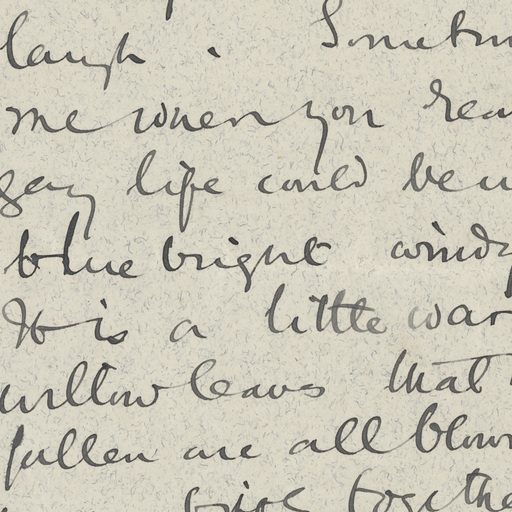 laugh. Sometim
me when you rea
gay life could be
blue bright windy
It is a little war
willow leaves that
fallen are all blown
togethe